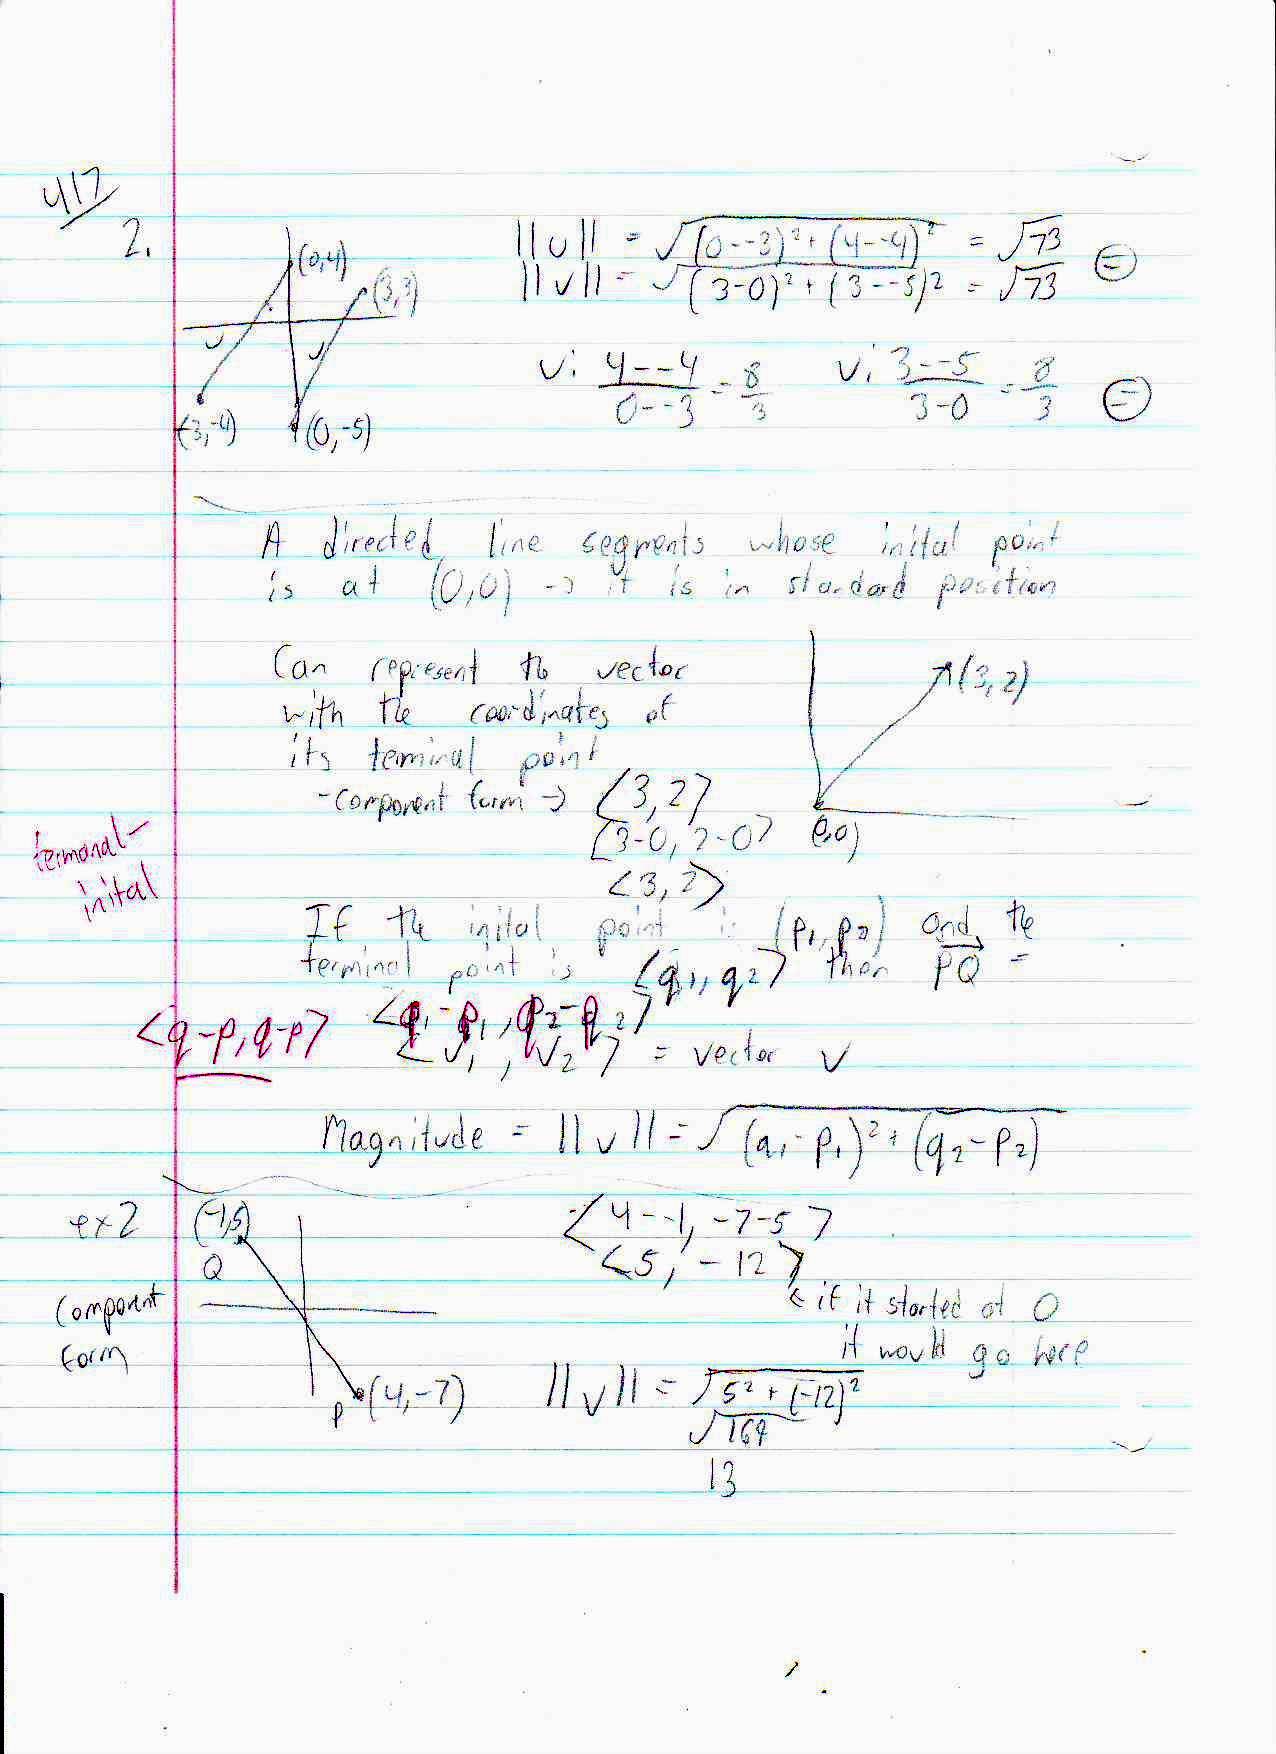 417
2.
(0,4)
(3,3)
u
v
(-3,-4)
(0,-5)
||u|| = √(0--3)²+(4--4)² = √73
||v|| = √(3-0)²+(3--5)² = √73 =
u: 4--4/0--3 = 8/3 v: 3--5/3-0 = 8/3 =
A directed line segments whose inital point
is at (0,0) → it is in standard position
Can represent the vector
with the coordinates of
its terminal point
-component form → <3,2>
<3-0, 2-0>
<3,2>
(3,2)
(0,0)
termanal-
inital
If the inital point is (p₁,p₂) and the
terminal point is <q₁,q₂> then PQ =
<q-p,q-p> <q₁-p₁,p₂-q₂>
<v₁, v₂> = vector v
Magnitude = ||v|| = √(q₁-p₁)²+(q₂-p₂)
ex 2
component
form
(-1,5)
Q
P (4,-7)
<4--1, -7-5>
<5, -12>
← if it started at 0
it would go here
||v|| = √5²+(-12)²
√169
13